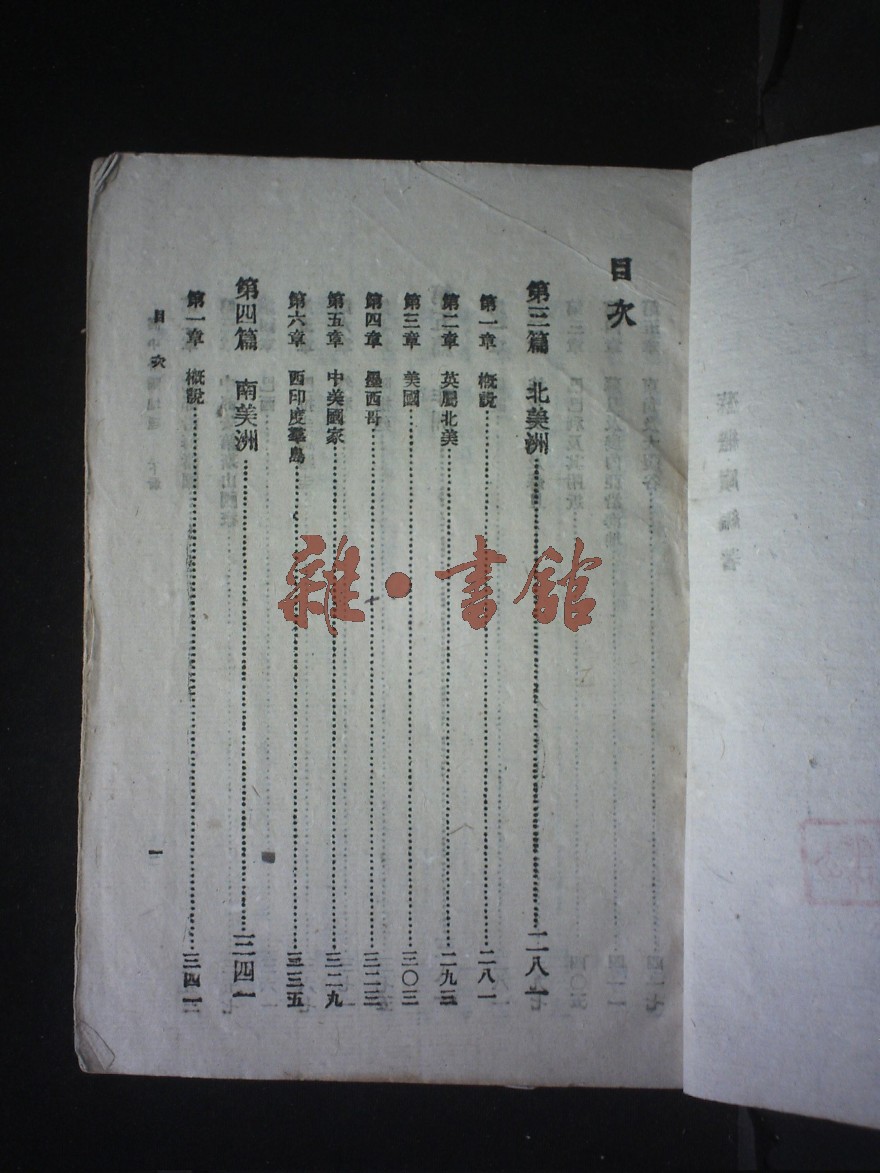 目次
第三篇 北美洲……二八一
第一章 概說……二八一
第二章 英屬北美……二九三
第三章 美國……三〇三
第四章 墨西哥……三二三
第五章 中美國家……三二九
第六章 西印度羣島……三三五
第四篇 南美洲……三四一
第一章 概說……三四一
目次
一
雜·書館